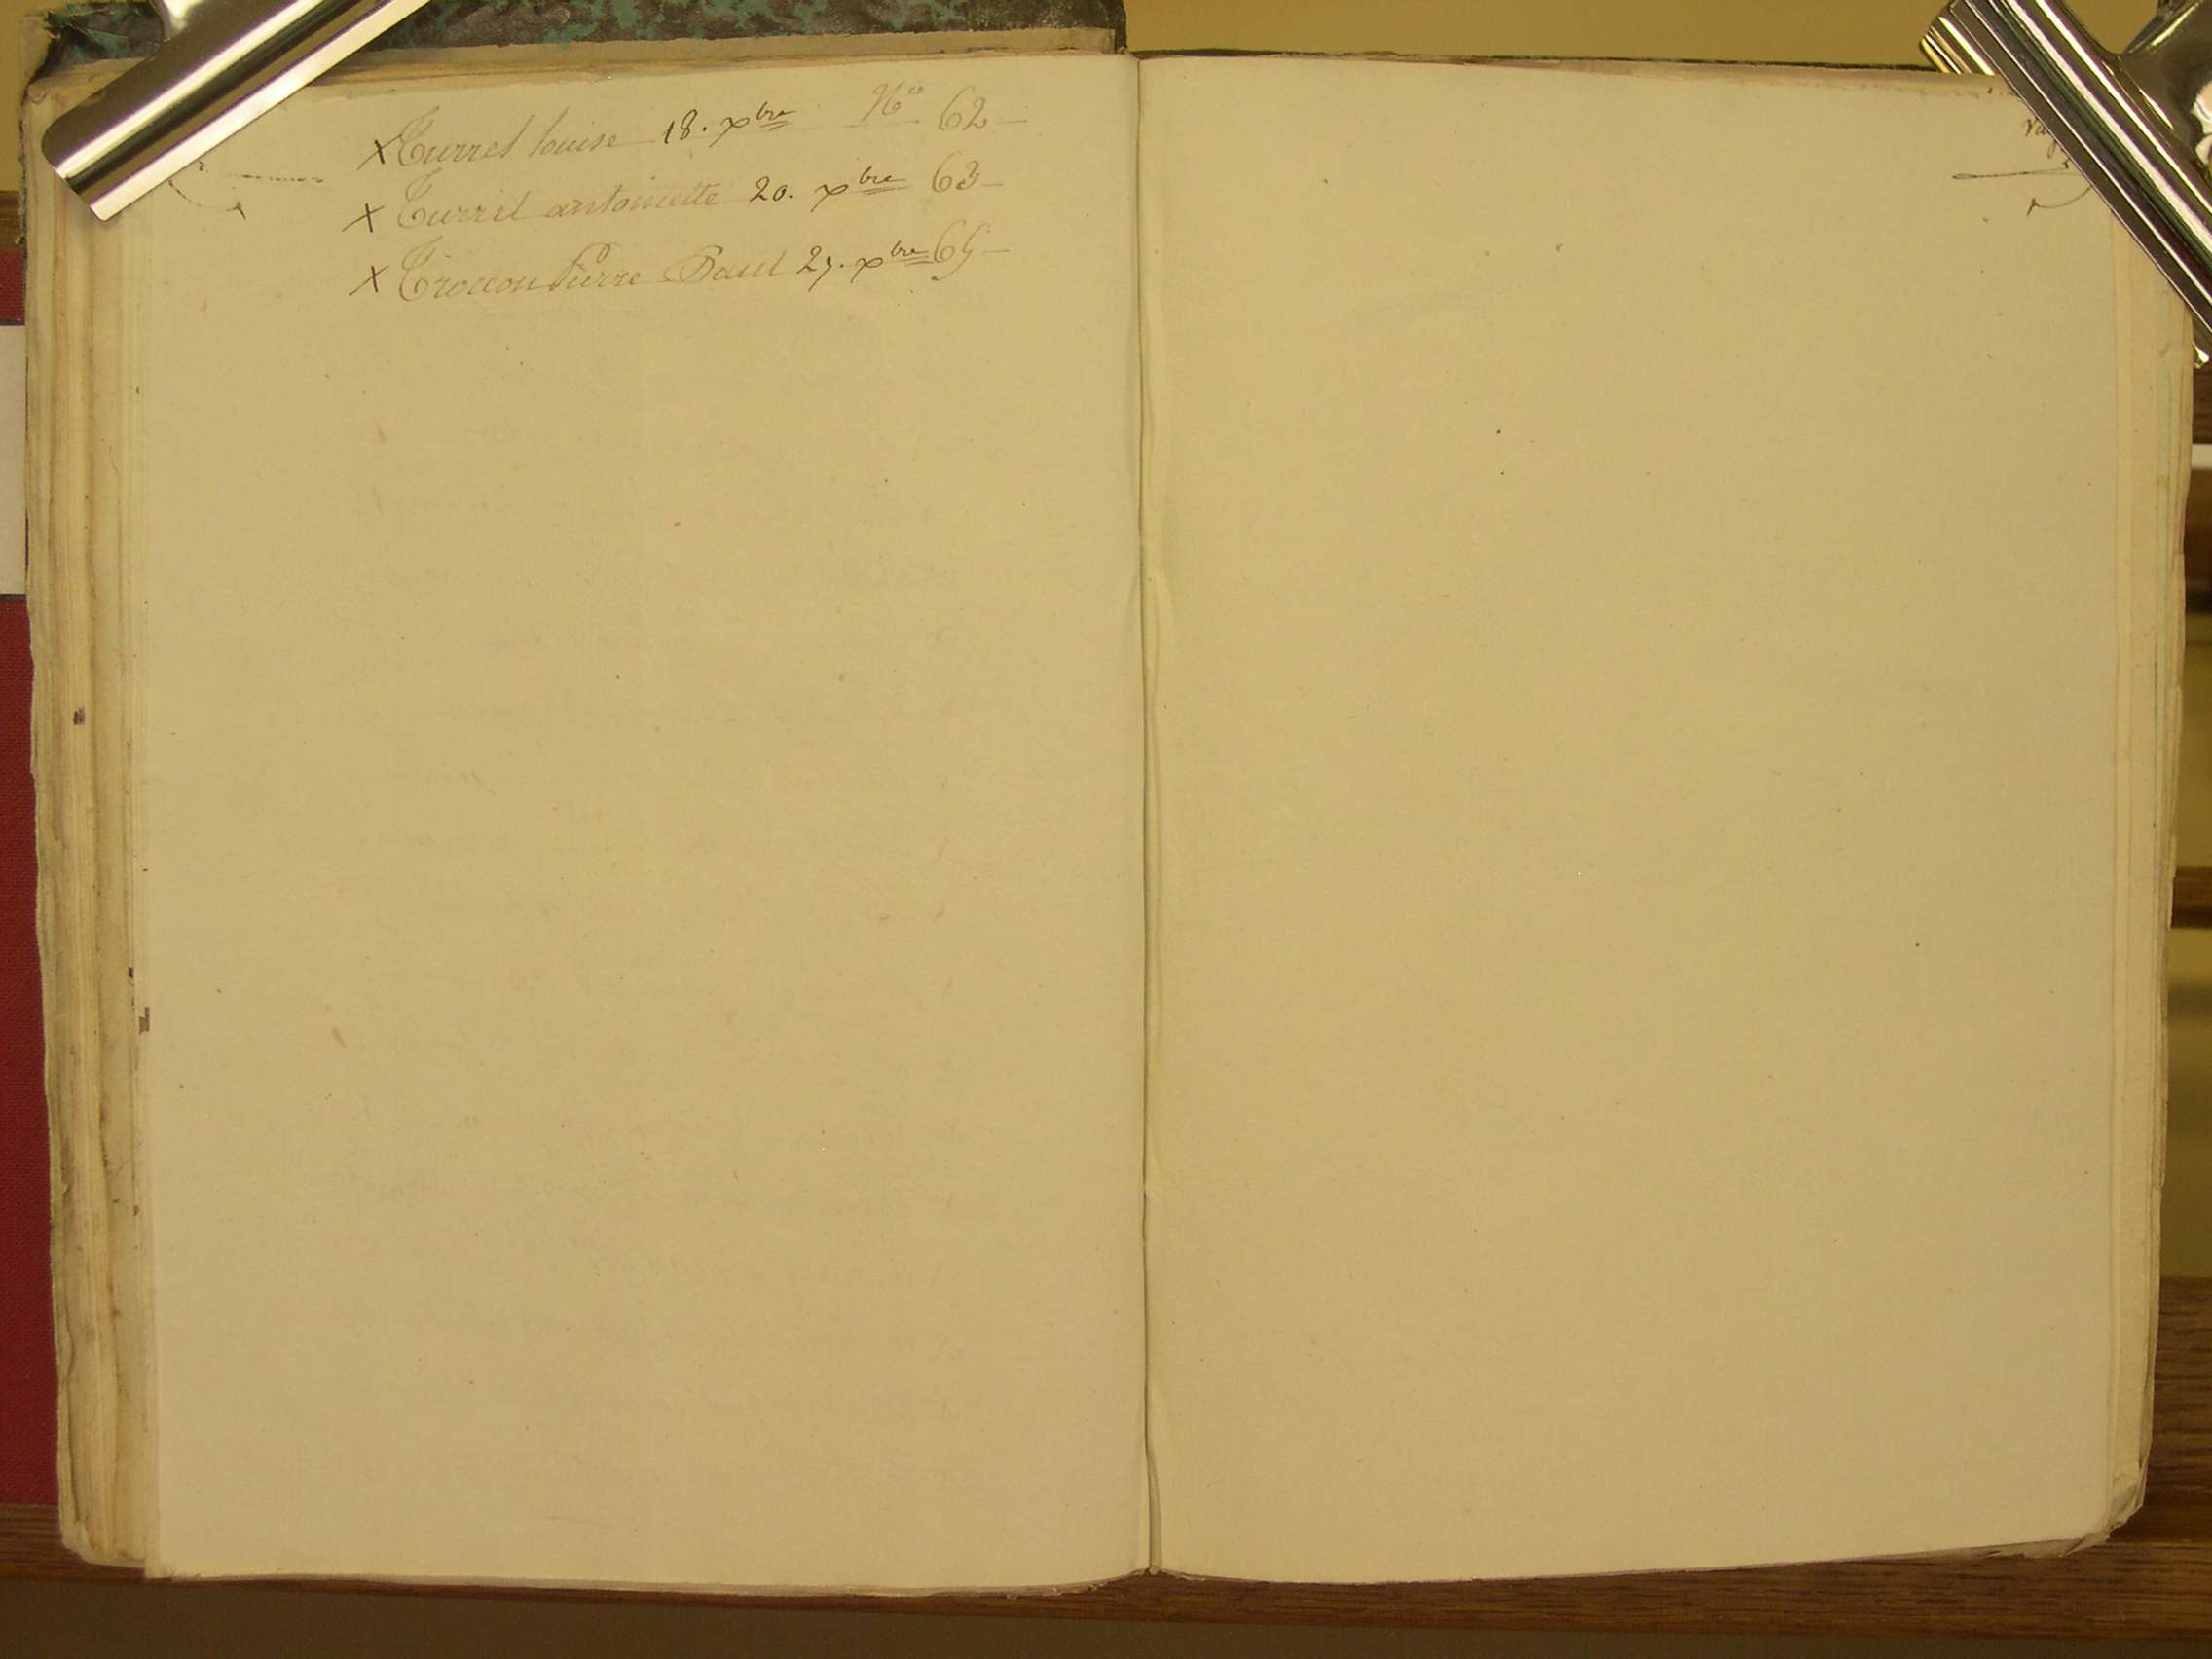 x Turrel louise 18. xbre No 62 —
x Turril antoinette 20. xbre 63 —
x Troccon Pierre Paul 27. xbre 65 —